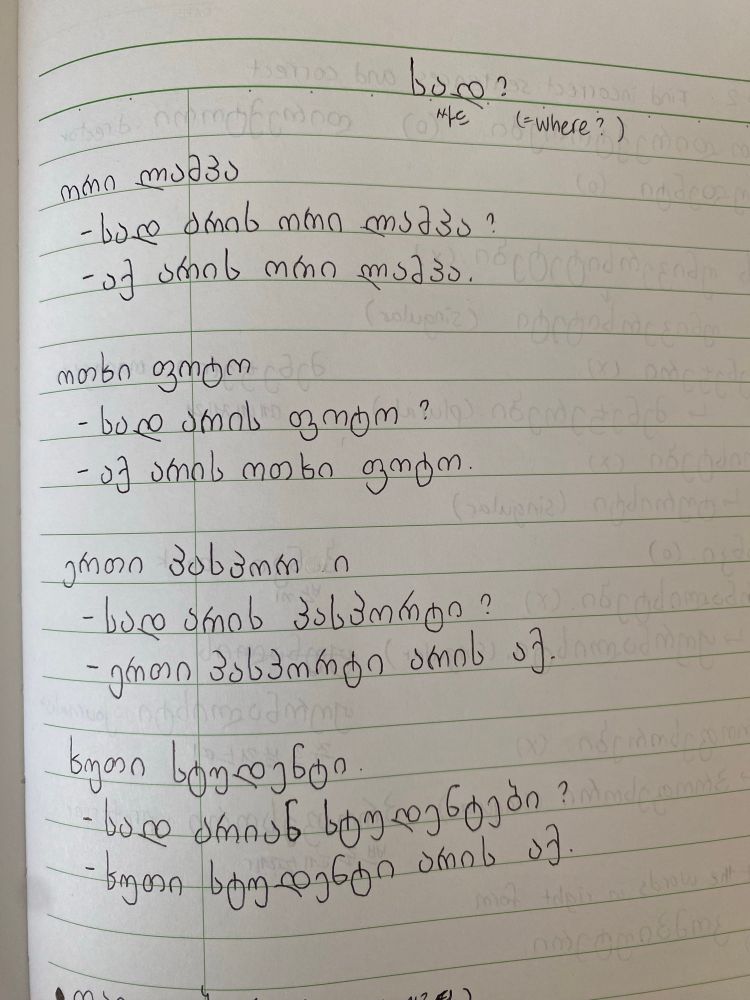 სად?
사드 (=where?)
ორი ლამპა
-სად არის ორი ლამპა?
-აქ არის ორი ლამპა.
ოთხი ფოტო
-სად არის ფოტო?
-აქ არის ოთხი ფოტო.
ერთი პასპორტი
-სად არის პასპორტი?
-ერთი პასპორტი არის აქ.
ხუთი სტუდენტი.
-სად არიან სტუდენტები?
-ხუთი სტუდენტი არის აქ.